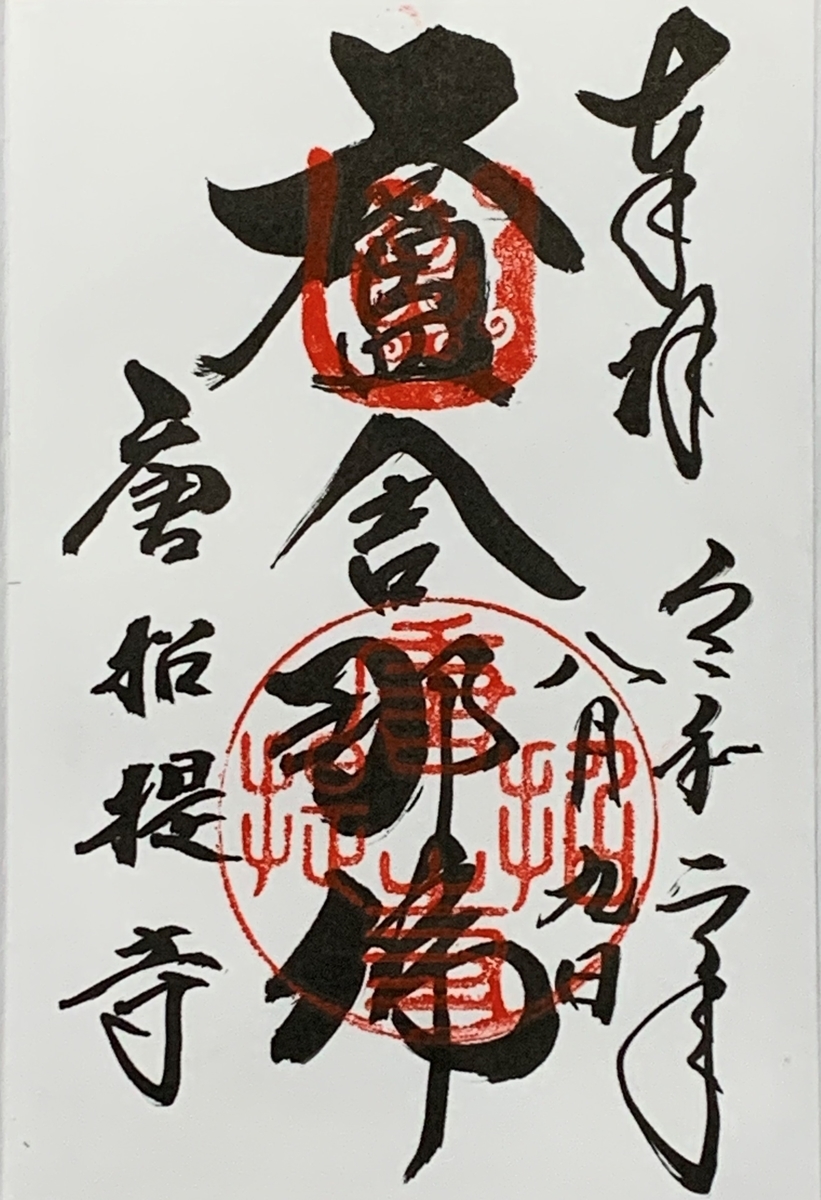 奉拝
令和二年
八月九日
盧舎那佛
唐招提寺